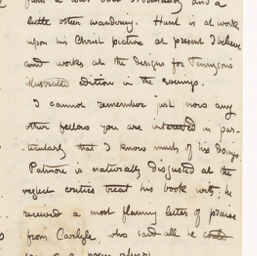 from a
little other wandering. Hunt is at work
upon his Christ picture at present I believe
and works at the designs for Tennyson's
Illustrated edition in the evenings.
I cannot remember just now any
other fellows you are interested in par-
ticularly that I know much of his doings.
Patmore is naturally disgusted at the
neglect critics treat his book with; he
received a most flaming letter of praise
from Carlyle, who said all he could